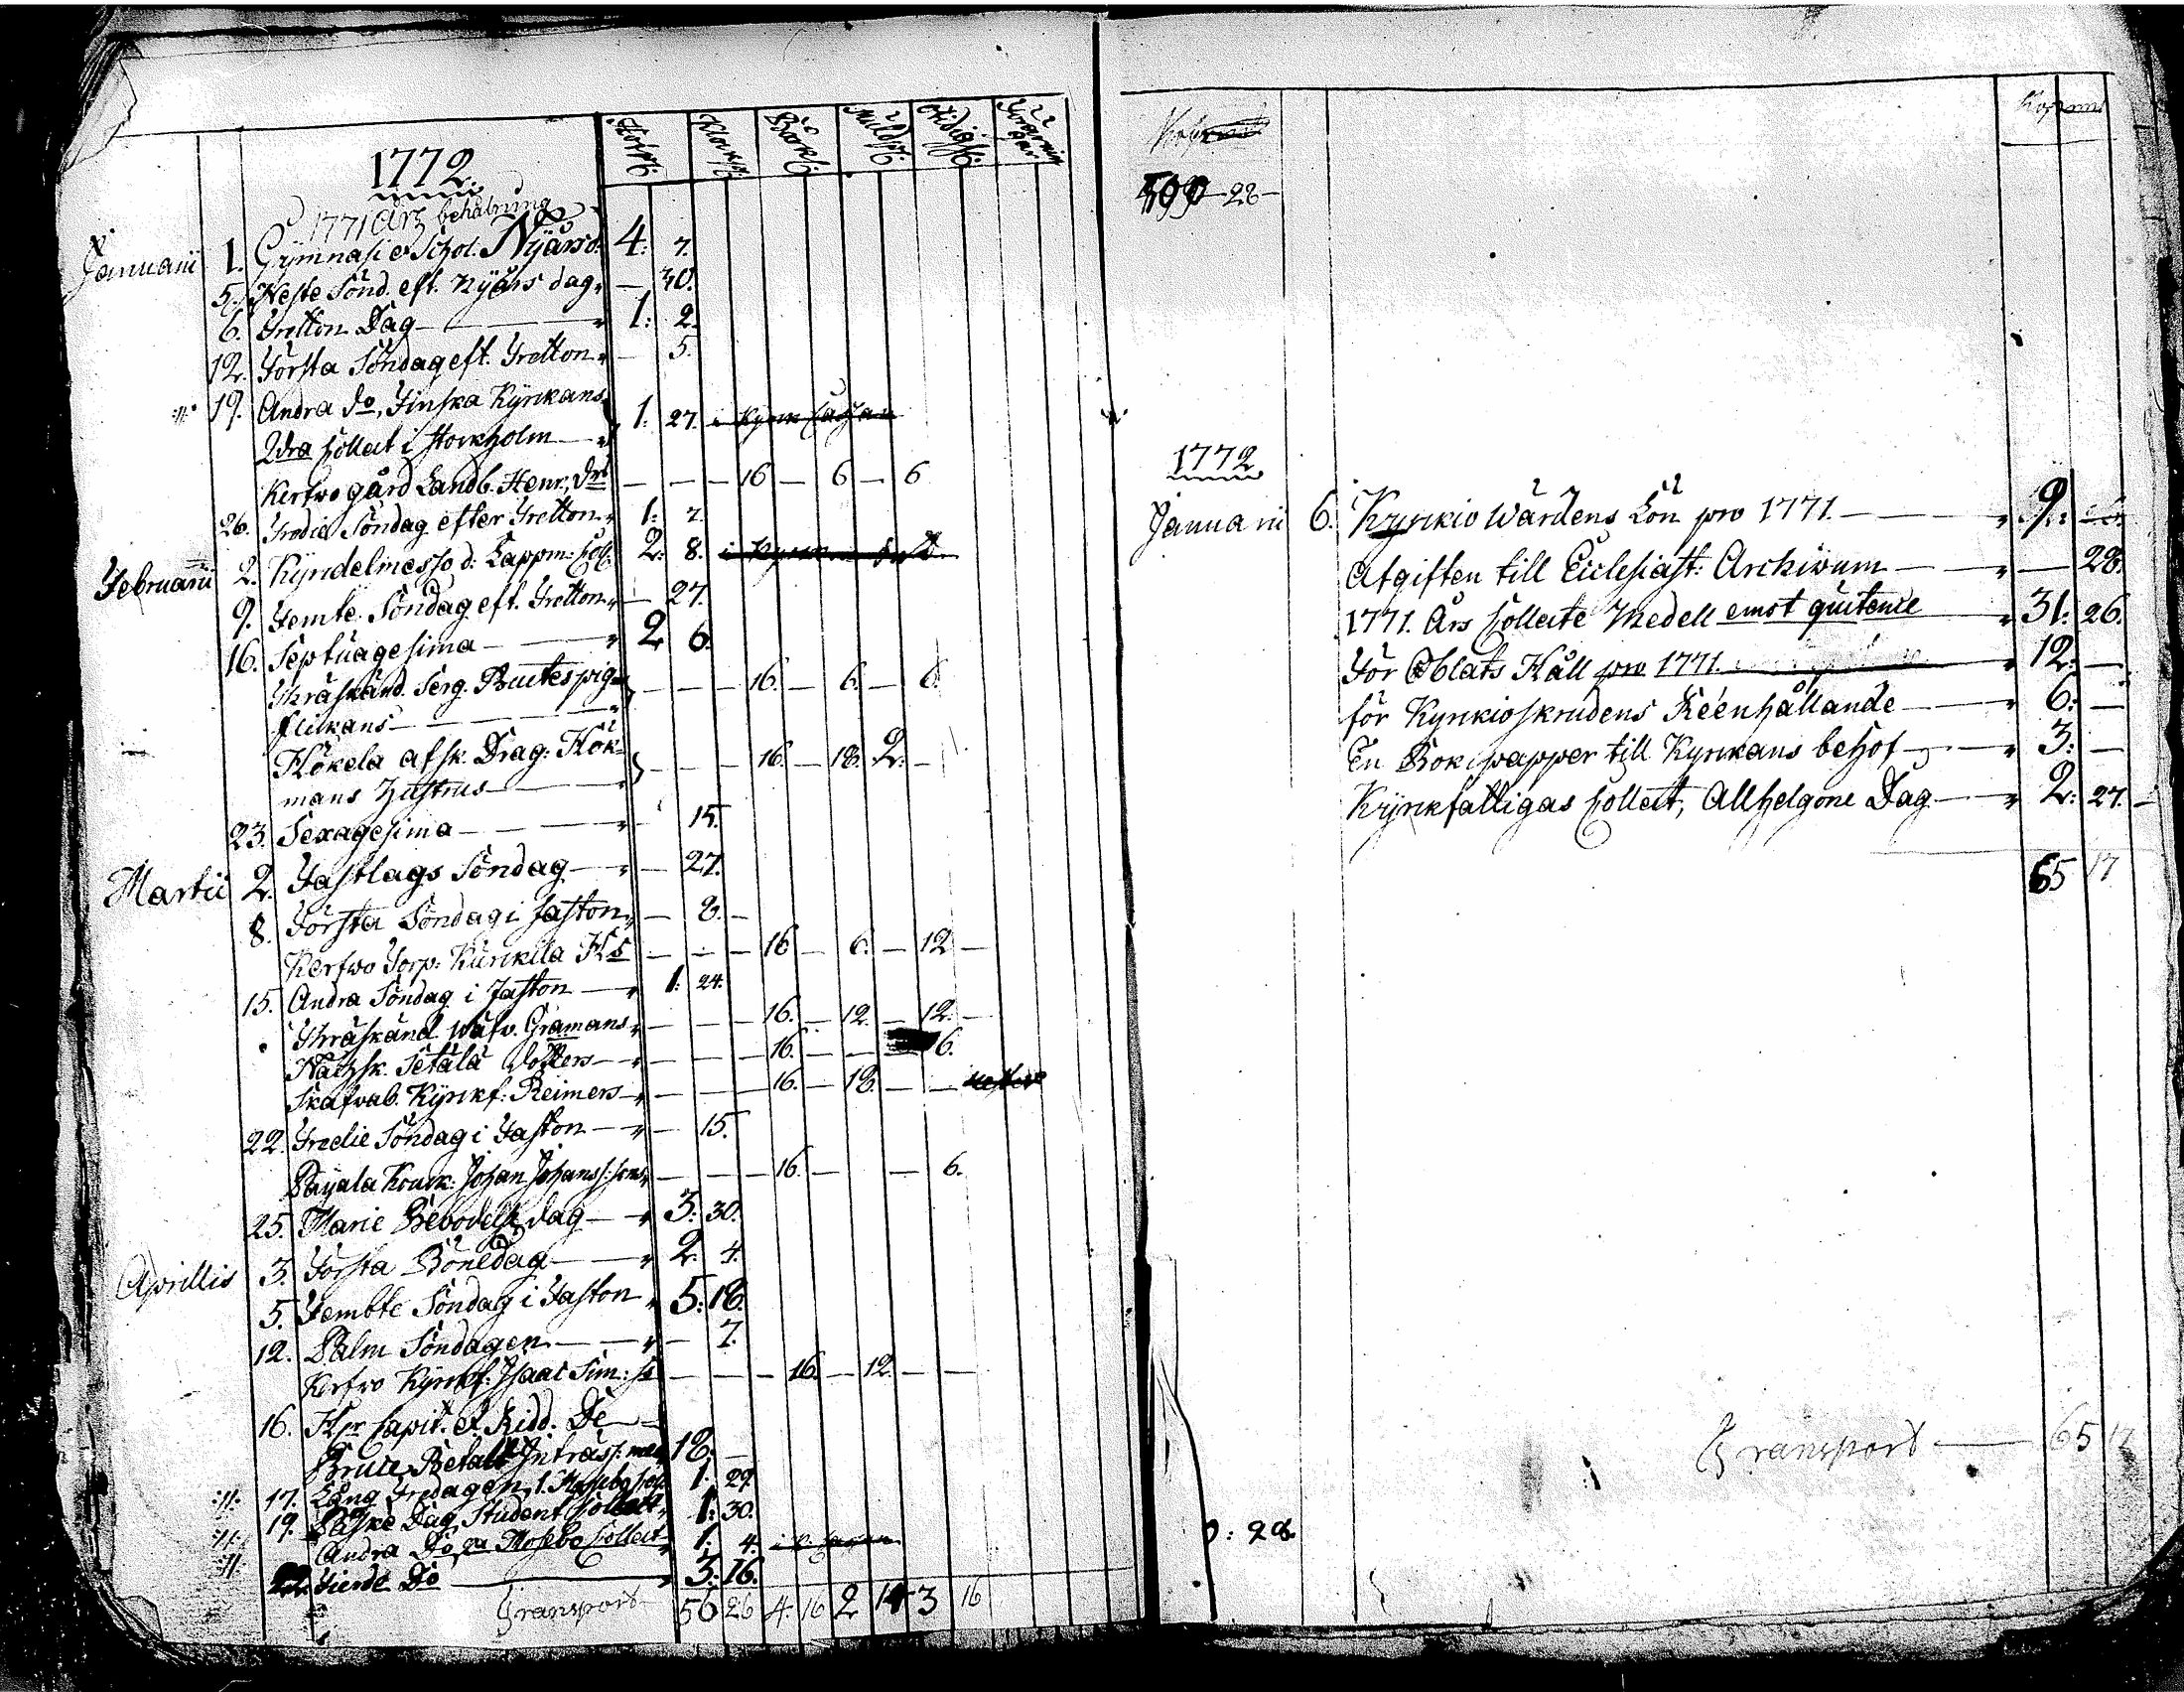 1772.
1771 Års behålning
Januarii 1. Gÿmnasie Schol. Nÿårsd. 4: 7.
5. Neste Sönd. eft. nÿårs dag — 30.
6. Tretton Dag — 1: 2.
12. Första Söndag eft. Tretton — 5.
:||: 19. Andra do, Finska Kÿrkans
2dra Collect i Stockholm — 1: 27.
Kerfwo gård Landb. Henr. — — — 16 — 6 — 6
26. Tredie Söndag efter Tretton 1: 7.
Februarii 2. Kÿndelmesso d: Lappm: Coll. 2: 8.
9. Femte Söndag eft. Tretton — 27.
16. Septuagesima — 2 6.
Thräskänd. Serg. pig
flickans — — — — 16. — 6. — 6.
Hökela afsk. Drag: Hök=
mans hustrus — — — — 16. — 18. 2. —
23. Sexagesima — — 15.
Martii 2. Fastlags Söndag — — 27.
8. Första Söndag i faston — 8. —
Kerfwo Torp: Kurikila Hs — — — 16 — 6. — 12 —
15. Andra Söndag i faston — 1: 24.
Thräskänd. Gramans — — — 16. — 12. — 12. —
Setälä dotters — — — 16. — — 6.
Skafvab. Kÿrkf: Reimers — — — 16. — 18. — —
22. Tredie Söndag i Faston — — 15.
Johan Johanss: sons — — — 16. — — 6.
25. Marie Bebodelse dag — 3: 30.
Aprillis 3. Första Bönedag — 2. 4.
5. Fembte Söndag i Faston 5: 18.
12. Palm Söndagen — — 7.
Kerfwo Kÿrkf: Isaac Sim: — — — 16. — 12. — —
16. Hr Capit. et Ridd. De
Bruce Betalt 18. —
:||: 17. Lång Fredagen, 1. 1: 29.
:||: 19. Påske Dag Student Collect 1: 30.
:||: Andra Do Collect 1: 4.
Fierde Do — 3: 16.
Transport — 56 26 4: 16 2 14 3 16
28 —
1772
Januarii 6. Kyrkio Wärdens Lön pro 1771. — 9.
Afgiften till Ecclesiast: Archivum — — 28.
1771. Års Collecte Medell emot quitence 31: 26.
För Oblats Håll pro 1771. 12: —
för Kyrkioskrudens Réenhållande — 6: —
En Bok papper till Kyrkans behof — 3: —
Kÿrkfattigas Collect, Allhelgone Dag — 2: 27. —
65 17
Transport — 65 17
: 28